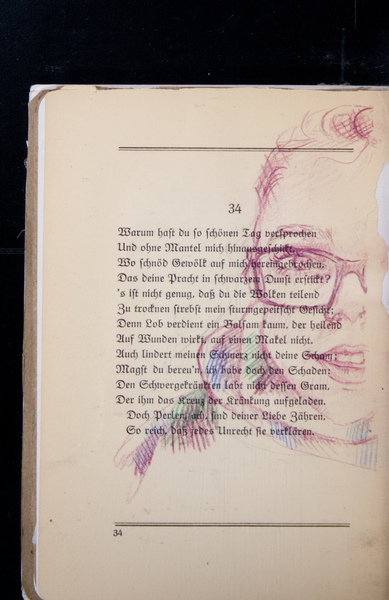 34
Warum hast du so schönen Tag versprochen
Und ohne Mantel mich hinausgeschickt,
Wo schnöd Gewölk auf mich hereingebrochen,
Das deine Pracht in schwarzem Dunst erstickt?
's ist nicht genug, daß du die Wolken teilend
Zu trocknen strebst mein sturmgepeitscht Gesicht:
Denn Lob verdient ein Balsam kaum, der heilend
Auf Wunden wirkt, auf einen Makel nicht.
Auch lindert meinen Schmerz nicht deine Scham:
Magst du bereu'n, ich habe doch den Schaden:
Den Schwergekränkten labt nicht dessen Gram,
Der ihm das Kreuz der Kränkung aufgeladen.
Doch Perlen, ach, sind deiner Liebe Zähren,
So reich, daß jedes Unrecht sie verklären.
34